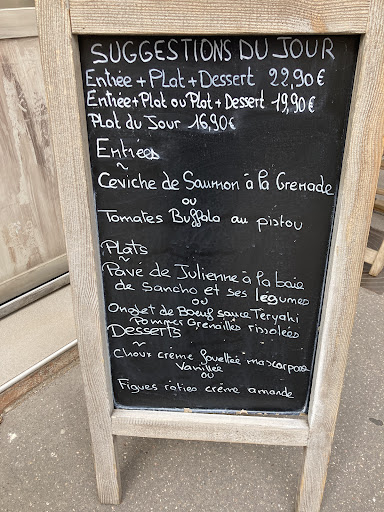 SUGGESTIONS DU JOUR
Entrée + Plat + Dessert 22,90€
Entrée + Plat ou Plat + Dessert 19,90€
Plat du Jour 16,90€
Entrées
~
Ceviche de Saumon à la Grenade
ou
Tomates Buffala au pistou
Plats
~
Pavé de Julienne à la baie
de Sancho et ses légumes
ou
Onglet de Boeuf sauce Teryaki
Pommes Grenailles rissolées
Desserts
~
Choux crème fouettée mascarpone
Vanillée
ou
Figues roties crème amande